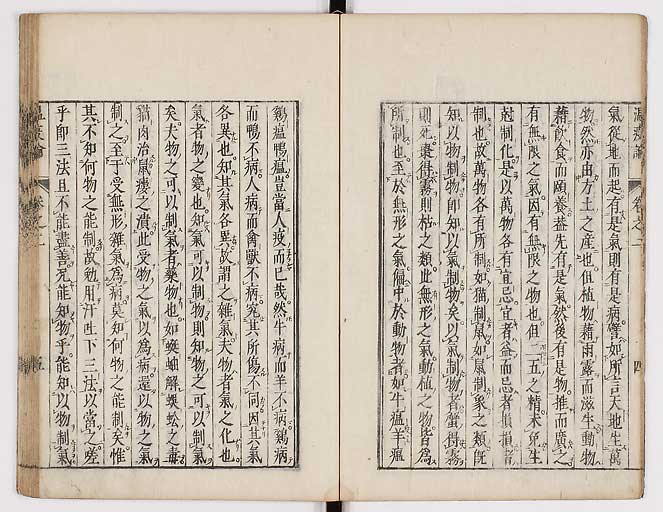 溫疫論 卷之二 四
氣從地而起有是氣則有是病譬如所言天地生萬
物然亦由方土之產也但植物藉雨露而滋生動物
藉飲食而頤養蓋先有是氣然後有是物推而廣之
有無限之氣因有無限之物也但二五之精未免生
尅制化是以萬物各有宜忌宜者益而忌者損損者
制也故萬物各有所制如猫制鼠如鼠制象之類既
知以物制物即知以氣制物矣以氣制物者蟹得霧
則死棗得霧則枯之類此無形之氣動植之物皆為
所制也至於無形之氣偏中於動物者如牛瘟羊瘟
鷄瘟鴨瘟豈當人疫而已哉然牛病而羊不病鷄病
而鴨不病人病而禽獸不病究其所傷不同因其氣
各異也知其氣各異故謂之雜氣夫物者氣之化也
氣者物之變也知氣可以制物則知物之可以制氣
矣夫物之可以制氣者藥物也如蜒蚰解蜈蚣之毒
猫肉治鼠瘻之潰此受物之氣以為病還以物之氣
制之至于受無形雜氣為病莫知何物之能制矣惟
其不知何物之能制故勉用汗吐下三法以當之嗟
乎即三法且不能盡善況能知物乎能知以物制氣
溫疫論 卷之二 五